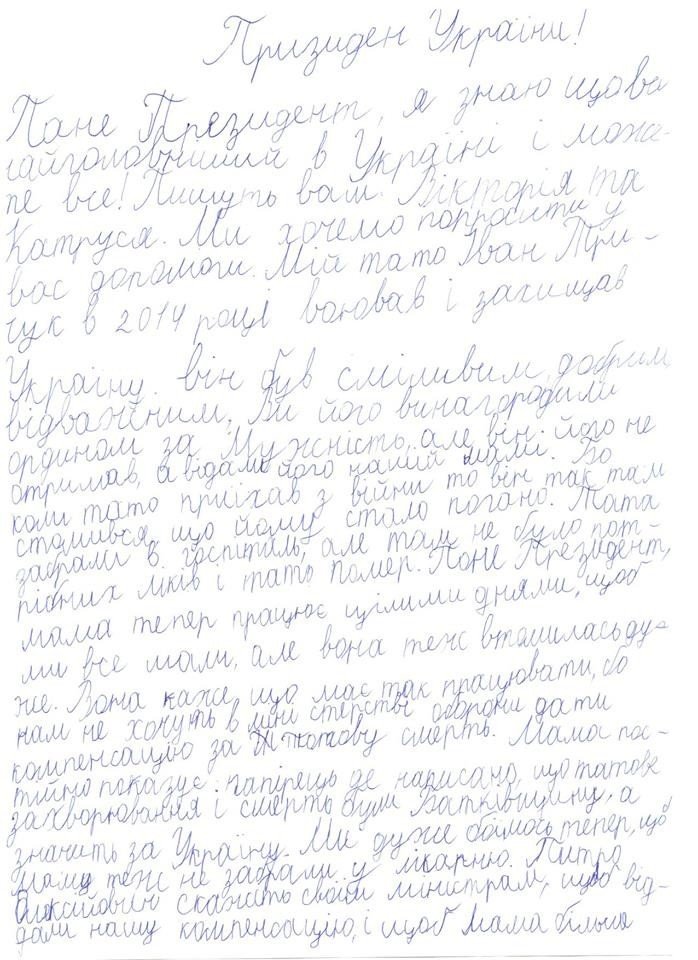 Призиден України!
Пане Президент, я знаю що ва
найголовніший в Україні і може-
те все! Пишуть вам Вікторія та
Катруся. Ми хочемо попросити у
вас допомоги. Мій тато Іван Три-
чук в 2014 році воював і захищав
Україну. він був сміливим, добрим,
відважним, Ви його винагородили
ордином за Мужність, але він його не
отримав, а відали його нашій мами. Бо
коли тато приїхав з війни то він так там
стомився, що йому стало погано. Тата
забрали в госпіталь, але там не було пот-
рібних ліків і тато помер. Пане Президент,
мама тепер працює цілими днями, щоб
ми все мали, але вона теж втомилась ду-
же. Вона каже, що має так працювати, бо
нам не хочуть в міністерстві оборони дати
компенсацію за татову смерть. Мама пос-
тійно показує папірець де написано, що татове
захворювання і смерть були Батківщину, а
значить за Україну. Ми дуже боїмось тепер, щоб
маму теж не забрали у лікарню. Питро
Олексійович скажіть своїм міністрам, щоб від-
дали нашу компенсацію, і щоб мама більше